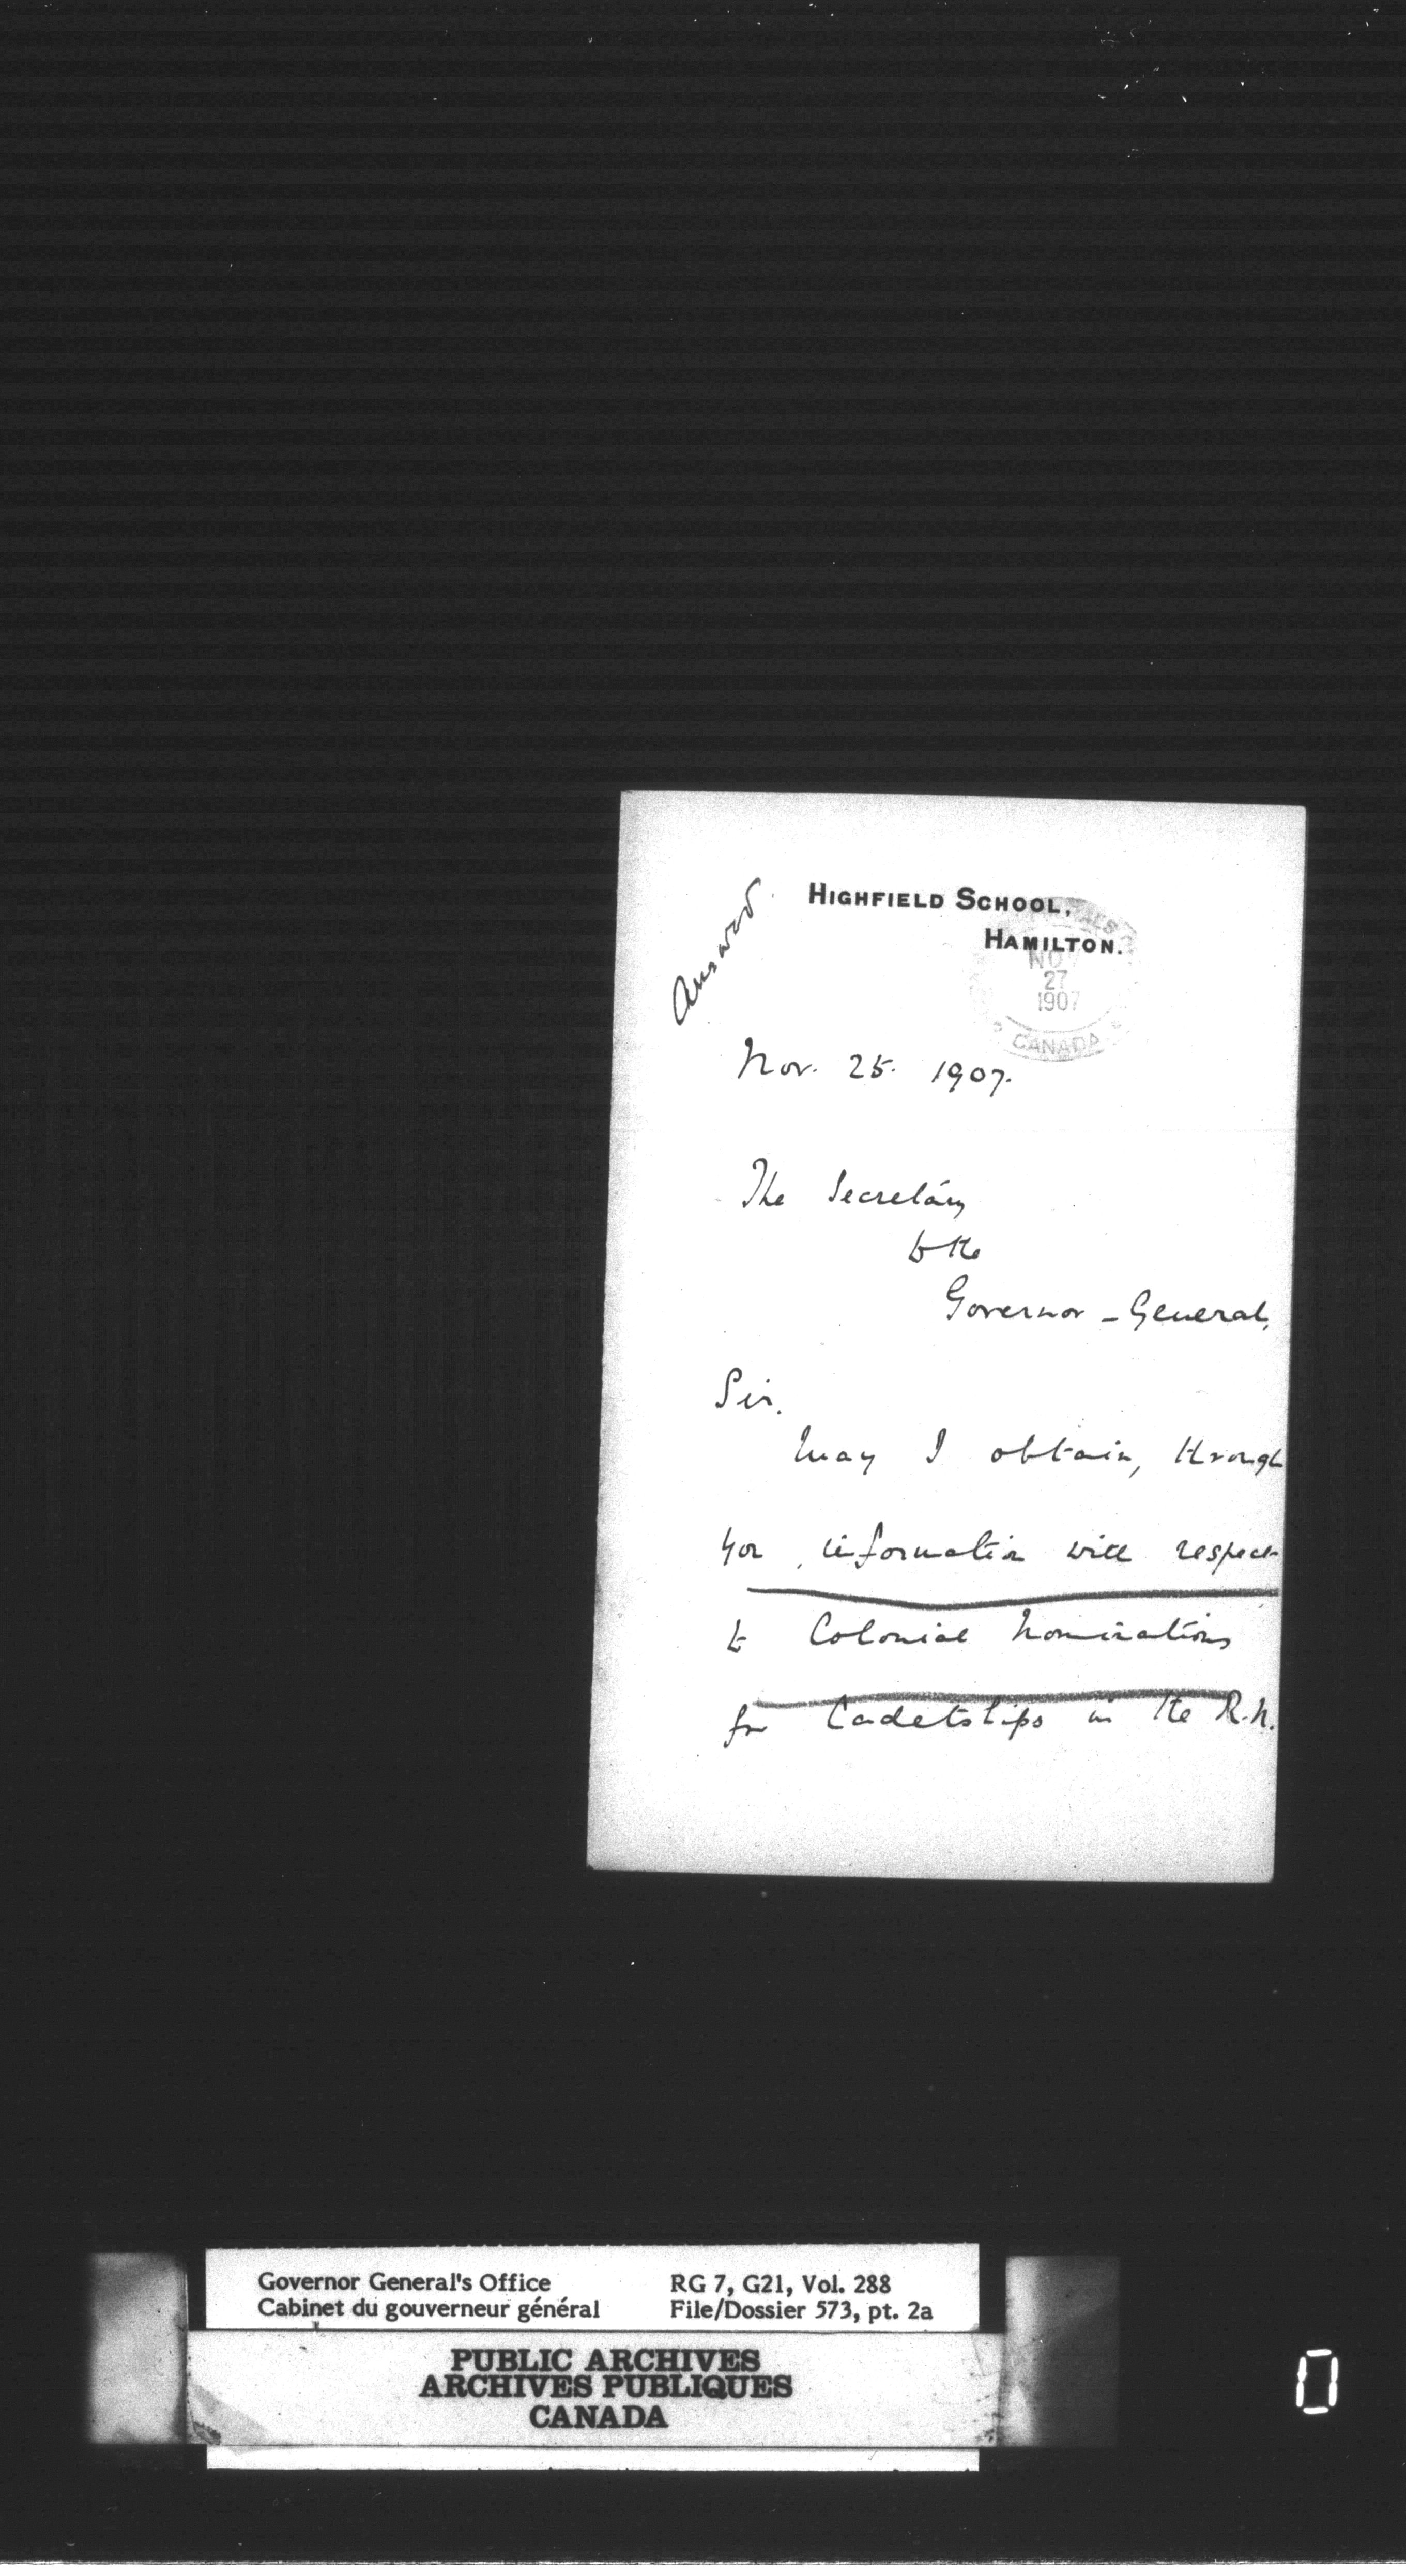 Answd.
HIGHFIELD SCHOOL,
HAMILTON.
NOV
27
1907
CANADA
Nov. 25. 1907.
The Secretary
to the
Governor-General.
Sir,
May I obtain, through
you, information with respect
to Colonial Nominations
for Cadetships in the R.N.
Governor General's Office
Cabinet du gouverneur général
RG 7, G21, Vol. 288
File/Dossier 573, pt. 2a
PUBLIC ARCHIVES
ARCHIVES PUBLIQUES
CANADA
0